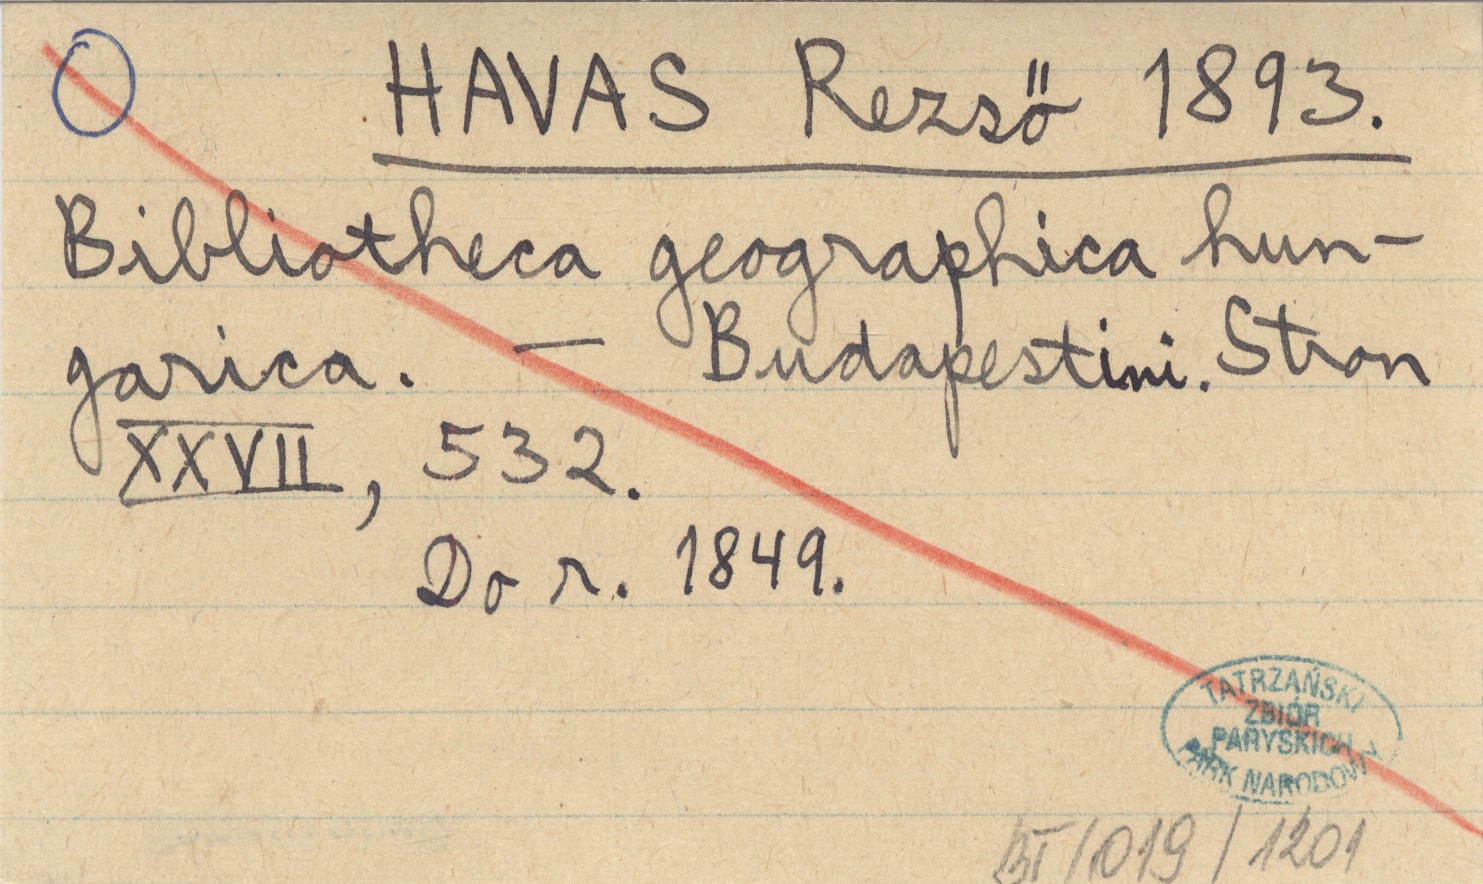 HAVAS Rezső 1893.
Bibliotheca geographica hun-
garica. — Budapestini. Stron
XXVII, 532.
Do r. 1849.
TATRZAŃSKI
ZBIÓR
PARYSKICH
PARK NARODOWY
BT/019/1201